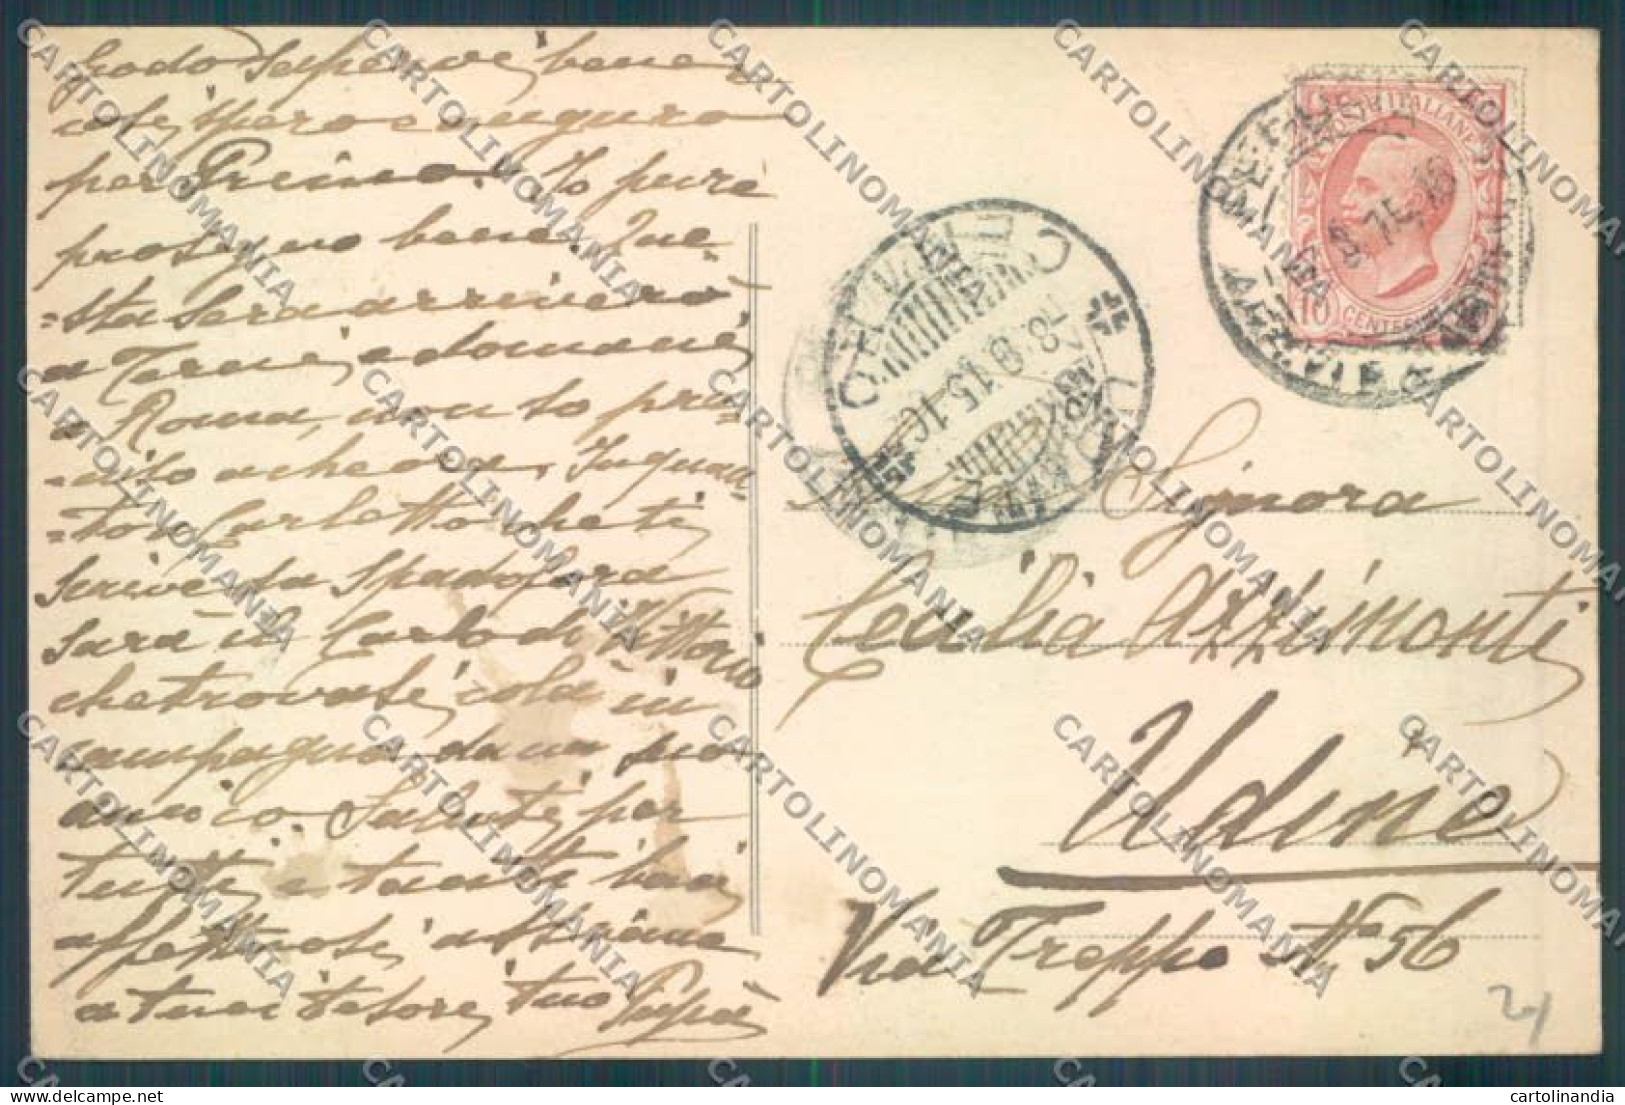 Godo sapervi bene
così spero e auguro
per Primo. Io pure
proseguo bene. Que-
-sta sera arriverò
a Terni, e domani
a Roma, non so pre-
ciso a che ora. In quan-
-to a Carletto che ti
scrive da Spadafora
sarà il Carlo di Vittorio
che trovasi colà in
campagna da un suo
amico. Saluti per
tutti e tanti baci
affettuosi, assieme
a tuoi tesori, tuo Papà
Alla Signora
Cecilia Azzimonti
Udine
Via Treppo No 56
POSTE ITALIANE
10
CENTESIMI
UDINE
CENTRO
8.9.15.16
21
CARTOLINOMANIA
cartolinandia